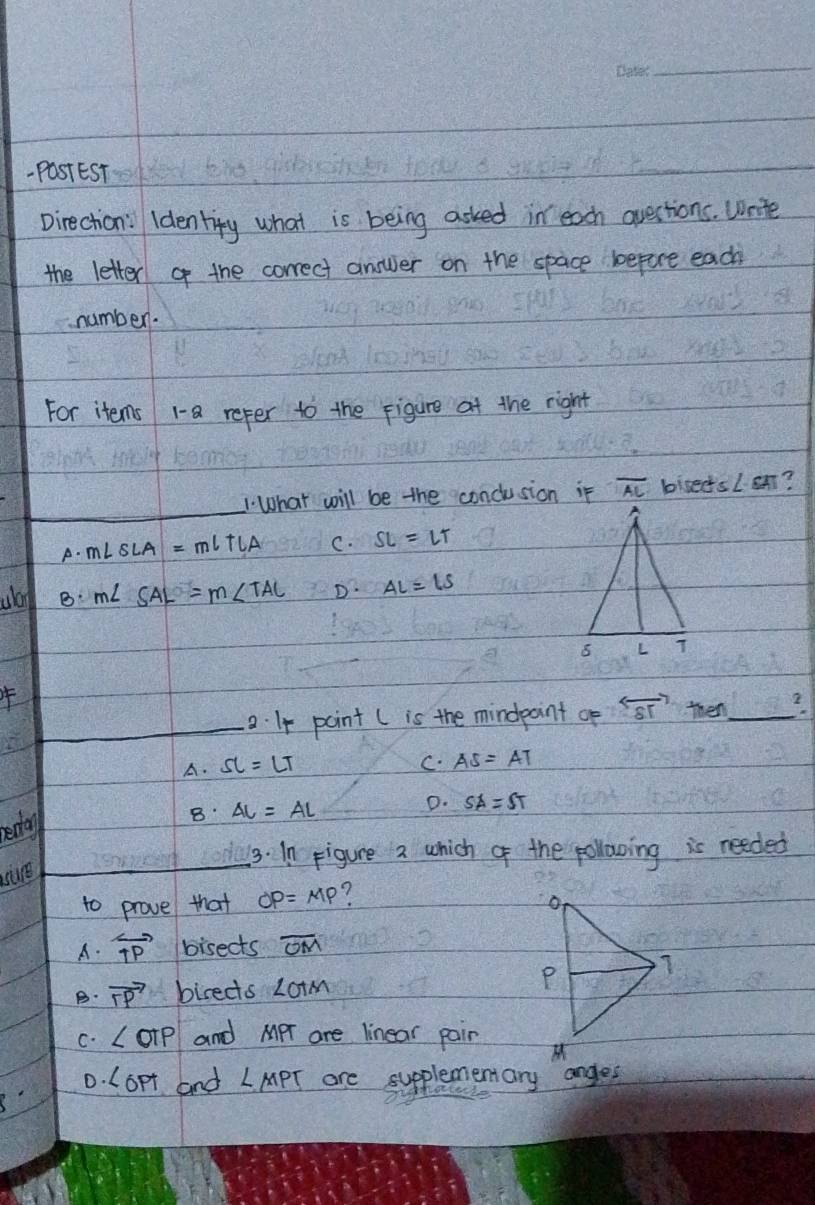 Date:
-POSTEST
Direction: Identify what is being asked in each questions. Write
the letter of the correct answer on the space before each
number.
For items 1-2 refer to the figure at the right
1. What will be the conclusion if AL bisects ∠SAT?
A. m∠SLA = m∠TLA C. SL = LT
B. m∠SAL = m∠TAL D. AL = LS
A
S L T
2. If point L is the mindpoint of ST then ?
A. SL = LT C. AS = AT
B. AL = AL D. SA = ST
3. In figure 2 which of the following is needed
to prove that OP = MP?
A. TP bisects OM
B. TP bisects ∠OTM
C. ∠OTP and MPT are linear pair
D. ∠OPT and ∠MPT are supplementary anges
O
P T
M